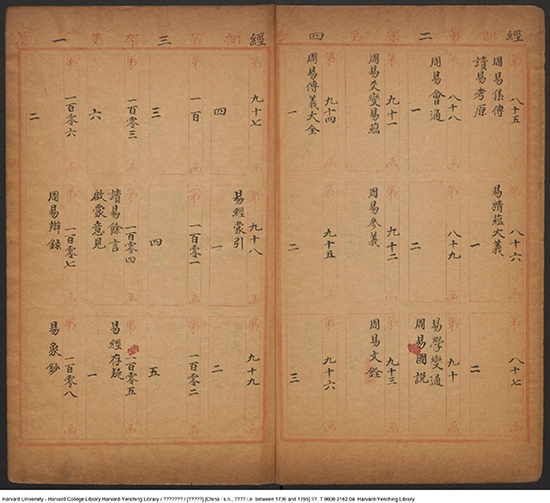 經部第二架第四
第八十五函
周易集傳
讀易考原
第八十六函
易精蘊大義
一
第八十七函
二
第八十八函
周易會通
一
第八十九函
二
第九十函
易學變通
周易圖說
第九十一函
周易爻變易蘊
第九十二函
周易參義
第九十三函
周易文詮
第九十四函
周易傳義大全
一
第九十五函
二
第九十六函
三
經部第三架第一
第九十七函
四
第九十八函
易經蒙引
一
第九十九函
二
第一百函
三
第一百零一函
四
第一百零二函
五
第一百零三函
六
第一百零四函
讀易餘言
啟蒙意見
第一百零五函
易經存疑
一
第一百零六函
二
第一百零七函
周易辯錄
第一百零八函
易象鈔
Harvard University - Harvard College Library Harvard-Yenching Library / ??????? / [?????] [China : s.n., ???? i.e. between 1736 and 1795] ??. T 9608 2162.04 Harvard-Yenching Library